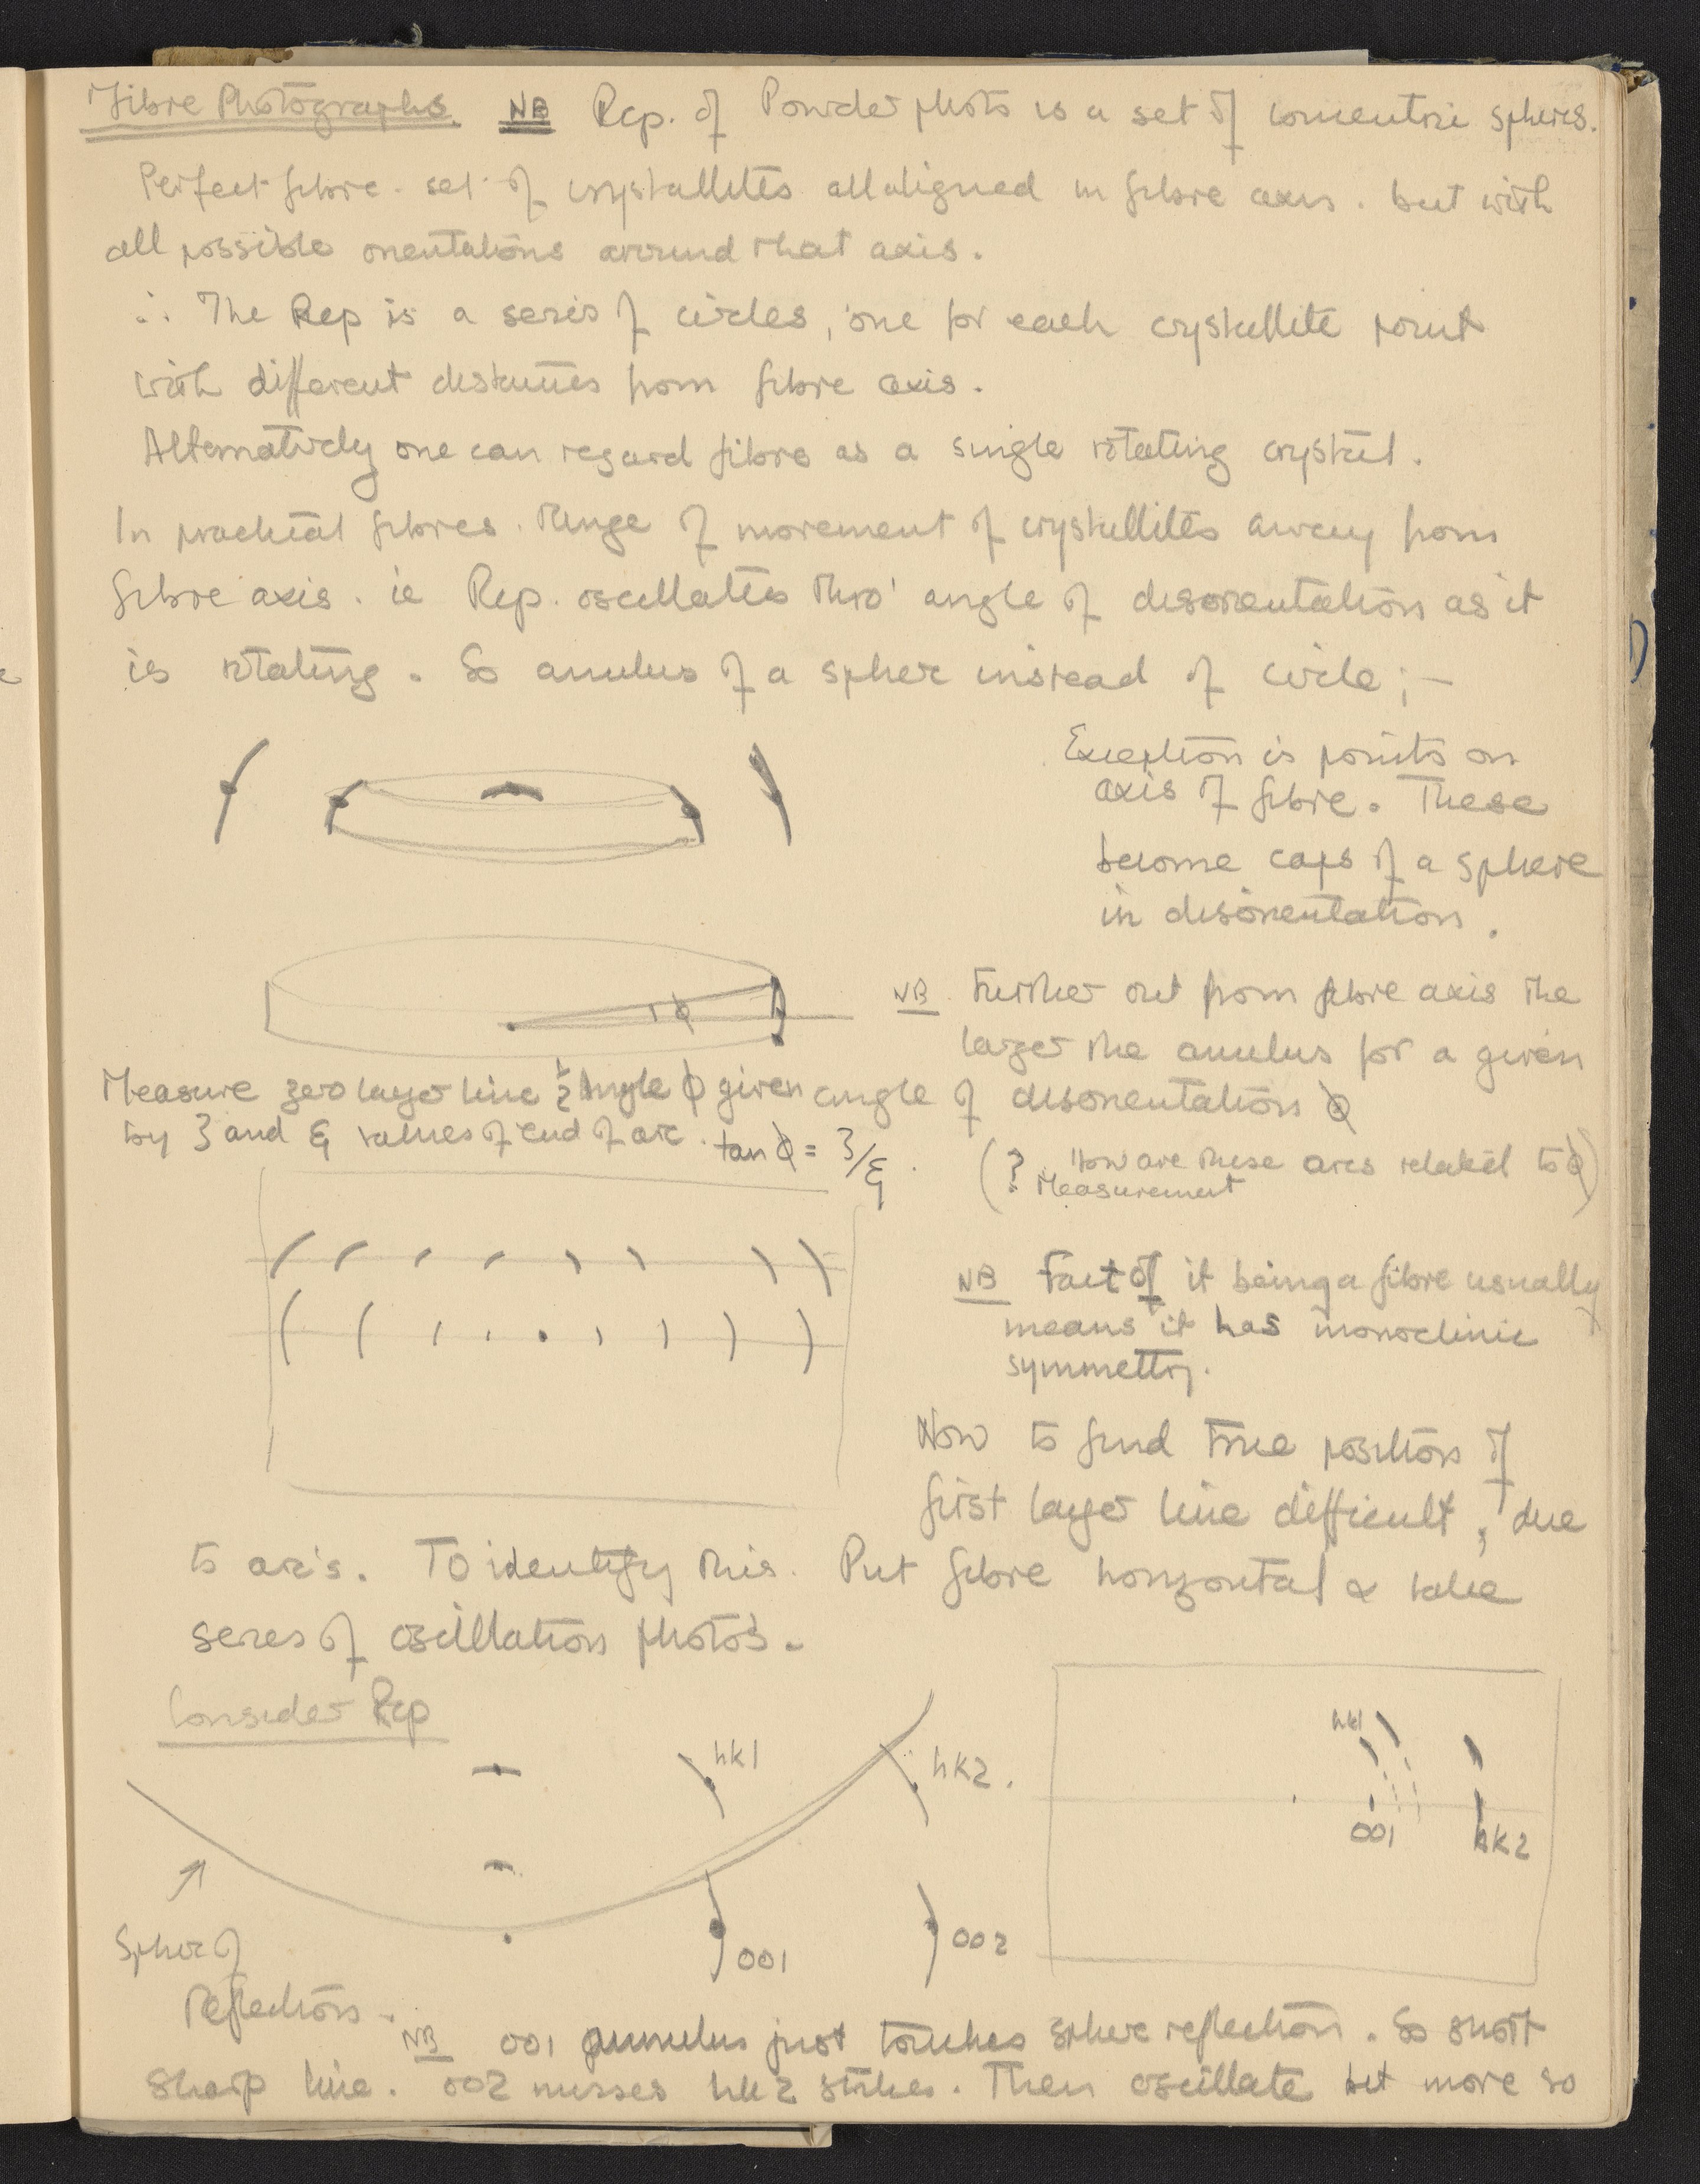 Fibre Photographs. NB Rep. of Powder photo is a set of concentric spheres.
Perfect fibre. set of crystallites all aligned in fibre axis. but with
all possible orientations around that axis.
∴ The Rep is a series of circles, one for each crystallite point
with different distances from fibre axis.
Alternatively one can regard fibre as a single rotating crystal.
In practical fibres. Range of movement of crystallites away from
fibre axis. ie Rep. oscillates thro' angle of disorientation as it
is rotating. So anulus of a sphere instead of circle; —
Exception is points on
axis of fibre. These
become caps of a sphere
in disorientation.
NB Further out from fibre axis the
larger the anulus for a given
angle of disorientation ϕ
ϕ
Measure zero layer line ½ Angle ϕ given
by ζ and ξ values of end of arc. tan ϕ = ζ/ξ.
(? How are these arcs related to ϕ)
Measurement
NB Fact of it being a fibre usually
means it has monoclinic
symmetry.
Now to find true position of
first layer line difficult, due
to arc's. To identify this. Put fibre horizontal & take
series of oscillation photo's.
Consider Rep
hk1
hk2.
001
002
Sphere of
Reflection.
hk1
001
hk2
NB 001 annulus just touches sphere reflection. So short
sharp line. 002 misses hk2 strikes. Then oscillate bit more so